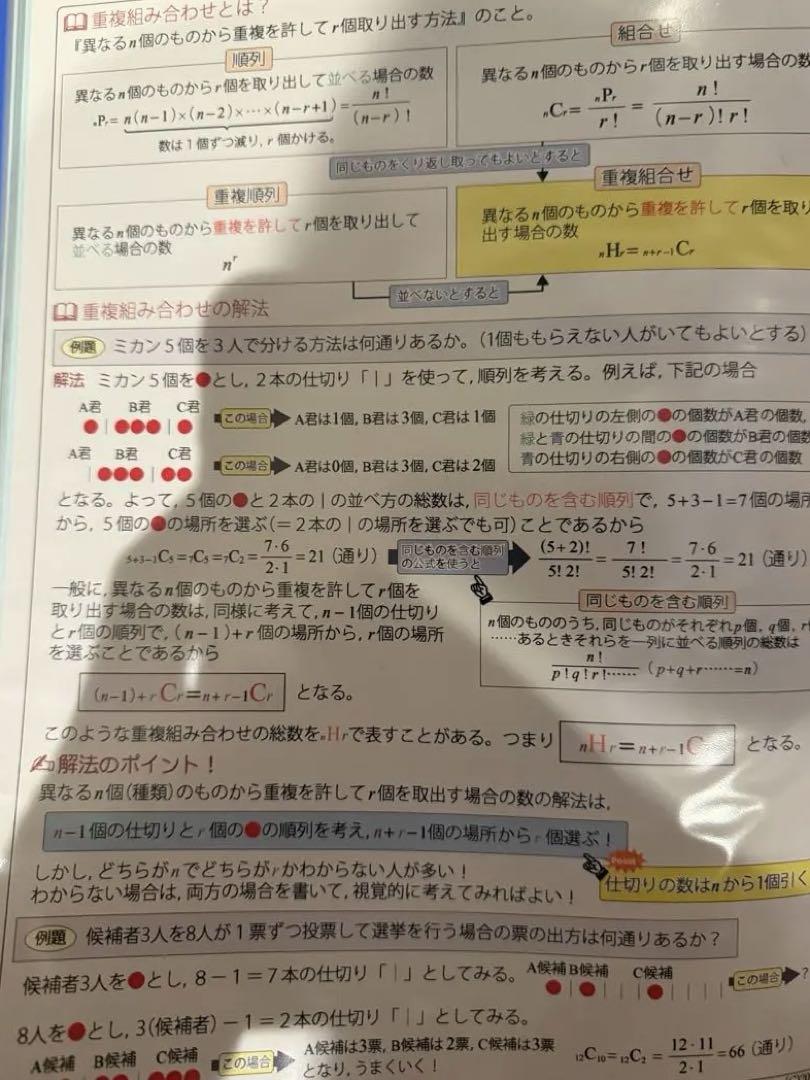 重複組み合わせとは？
『異なるn個のものから重複を許してr個取り出す方法』のこと。
順列
異なるn個のものからr個を取り出して並べる場合の数
nPr= n(n−1)×(n−2)×…×(n−r+1) = n! / (n−r)!
数は1個ずつ減り，r個かける。
組合せ
異なるn個のものからr個を取り出す場合の数
nCr= nPr / r! = n! / (n−r)! r!
同じものをくり返し取ってもよいとすると
重複順列
異なるn個のものから重複を許してr個を取り出して
並べる場合の数
n^r
重複組合せ
異なるn個のものから重複を許してr個を取り
出す場合の数
nHr= n+r−1Cr
並べないとすると
重複組み合わせの解法
例題 ミカン5個を3人で分ける方法は何通りあるか。（1個ももらえない人がいてもよいとする）
解法 ミカン5個を●とし，2本の仕切り「｜」を使って，順列を考える。例えば，下記の場合
A君 B君 C君
●｜●●●｜● この場合 A君は1個，B君は3個，C君は1個
A君 B君 C君
｜●●●｜●● この場合 A君は0個，B君は3個，C君は2個
緑の仕切りの左側の●の個数がA君の個数，
緑と青の仕切りの間の●の個数がB君の個数
青の仕切りの右側の●の個数がC君の個数
となる。よって，5個の●と2本の｜の並べ方の総数は，同じものを含む順列で，5+3−1=7個の場所
から，5個の●の場所を選ぶ（＝2本の｜の場所を選ぶでも可）ことであるから
5+3−1C5=7C5=7C2= 7・6 / 2・1 =21（通り） 同じものを含む順列の公式を使うと (5+2)! / 5! 2! = 7! / 5! 2! = 7・6 / 2・1 =21（通り）
一般に，異なるn個のものから重複を許してr個を
取り出す場合の数は，同様に考えて，n−1個の仕切り
とr個の順列で，(n−1)+r個の場所から，r個の場所
を選ぶことであるから
同じものを含む順列
n個のもののうち，同じものがそれぞれp個，q個，r
……あるときそれらを一列に並べる順列の総数は
n! / p!q!r!…… (p+q+r……=n)
(n−1)+rCr=n+r−1Cr となる。
このような重複組み合わせの総数をnHrで表すことがある。つまり nHr=n+r−1C となる。
解法のポイント！
異なるn個(種類)のものから重複を許してr個を取出す場合の数の解法は，
n−1個の仕切りとr個の●の順列を考え，n+r−1個の場所からr個選ぶ！
しかし，どちらがnでどちらがrかわからない人が多い！
わからない場合は，両方の場合を書いて，視覚的に考えてみればよい！
Point
仕切りの数はnから1個引く
例題 候補者3人を8人が1票ずつ投票して選挙を行う場合の票の出方は何通りあるか？
候補者3人を●とし，8−1=7本の仕切り「｜」としてみる。
A候補 B候補 C候補
●｜●｜｜●｜｜｜｜ この場合 ？
8人を●とし，3(候補者)−1=2本の仕切り「｜」としてみる。
A候補 B候補 C候補
この場合 A候補は3票，B候補は2票，C候補は3票
となり，うまくいく！
12C10=12C2= 12・11 / 2・1 =66（通り）